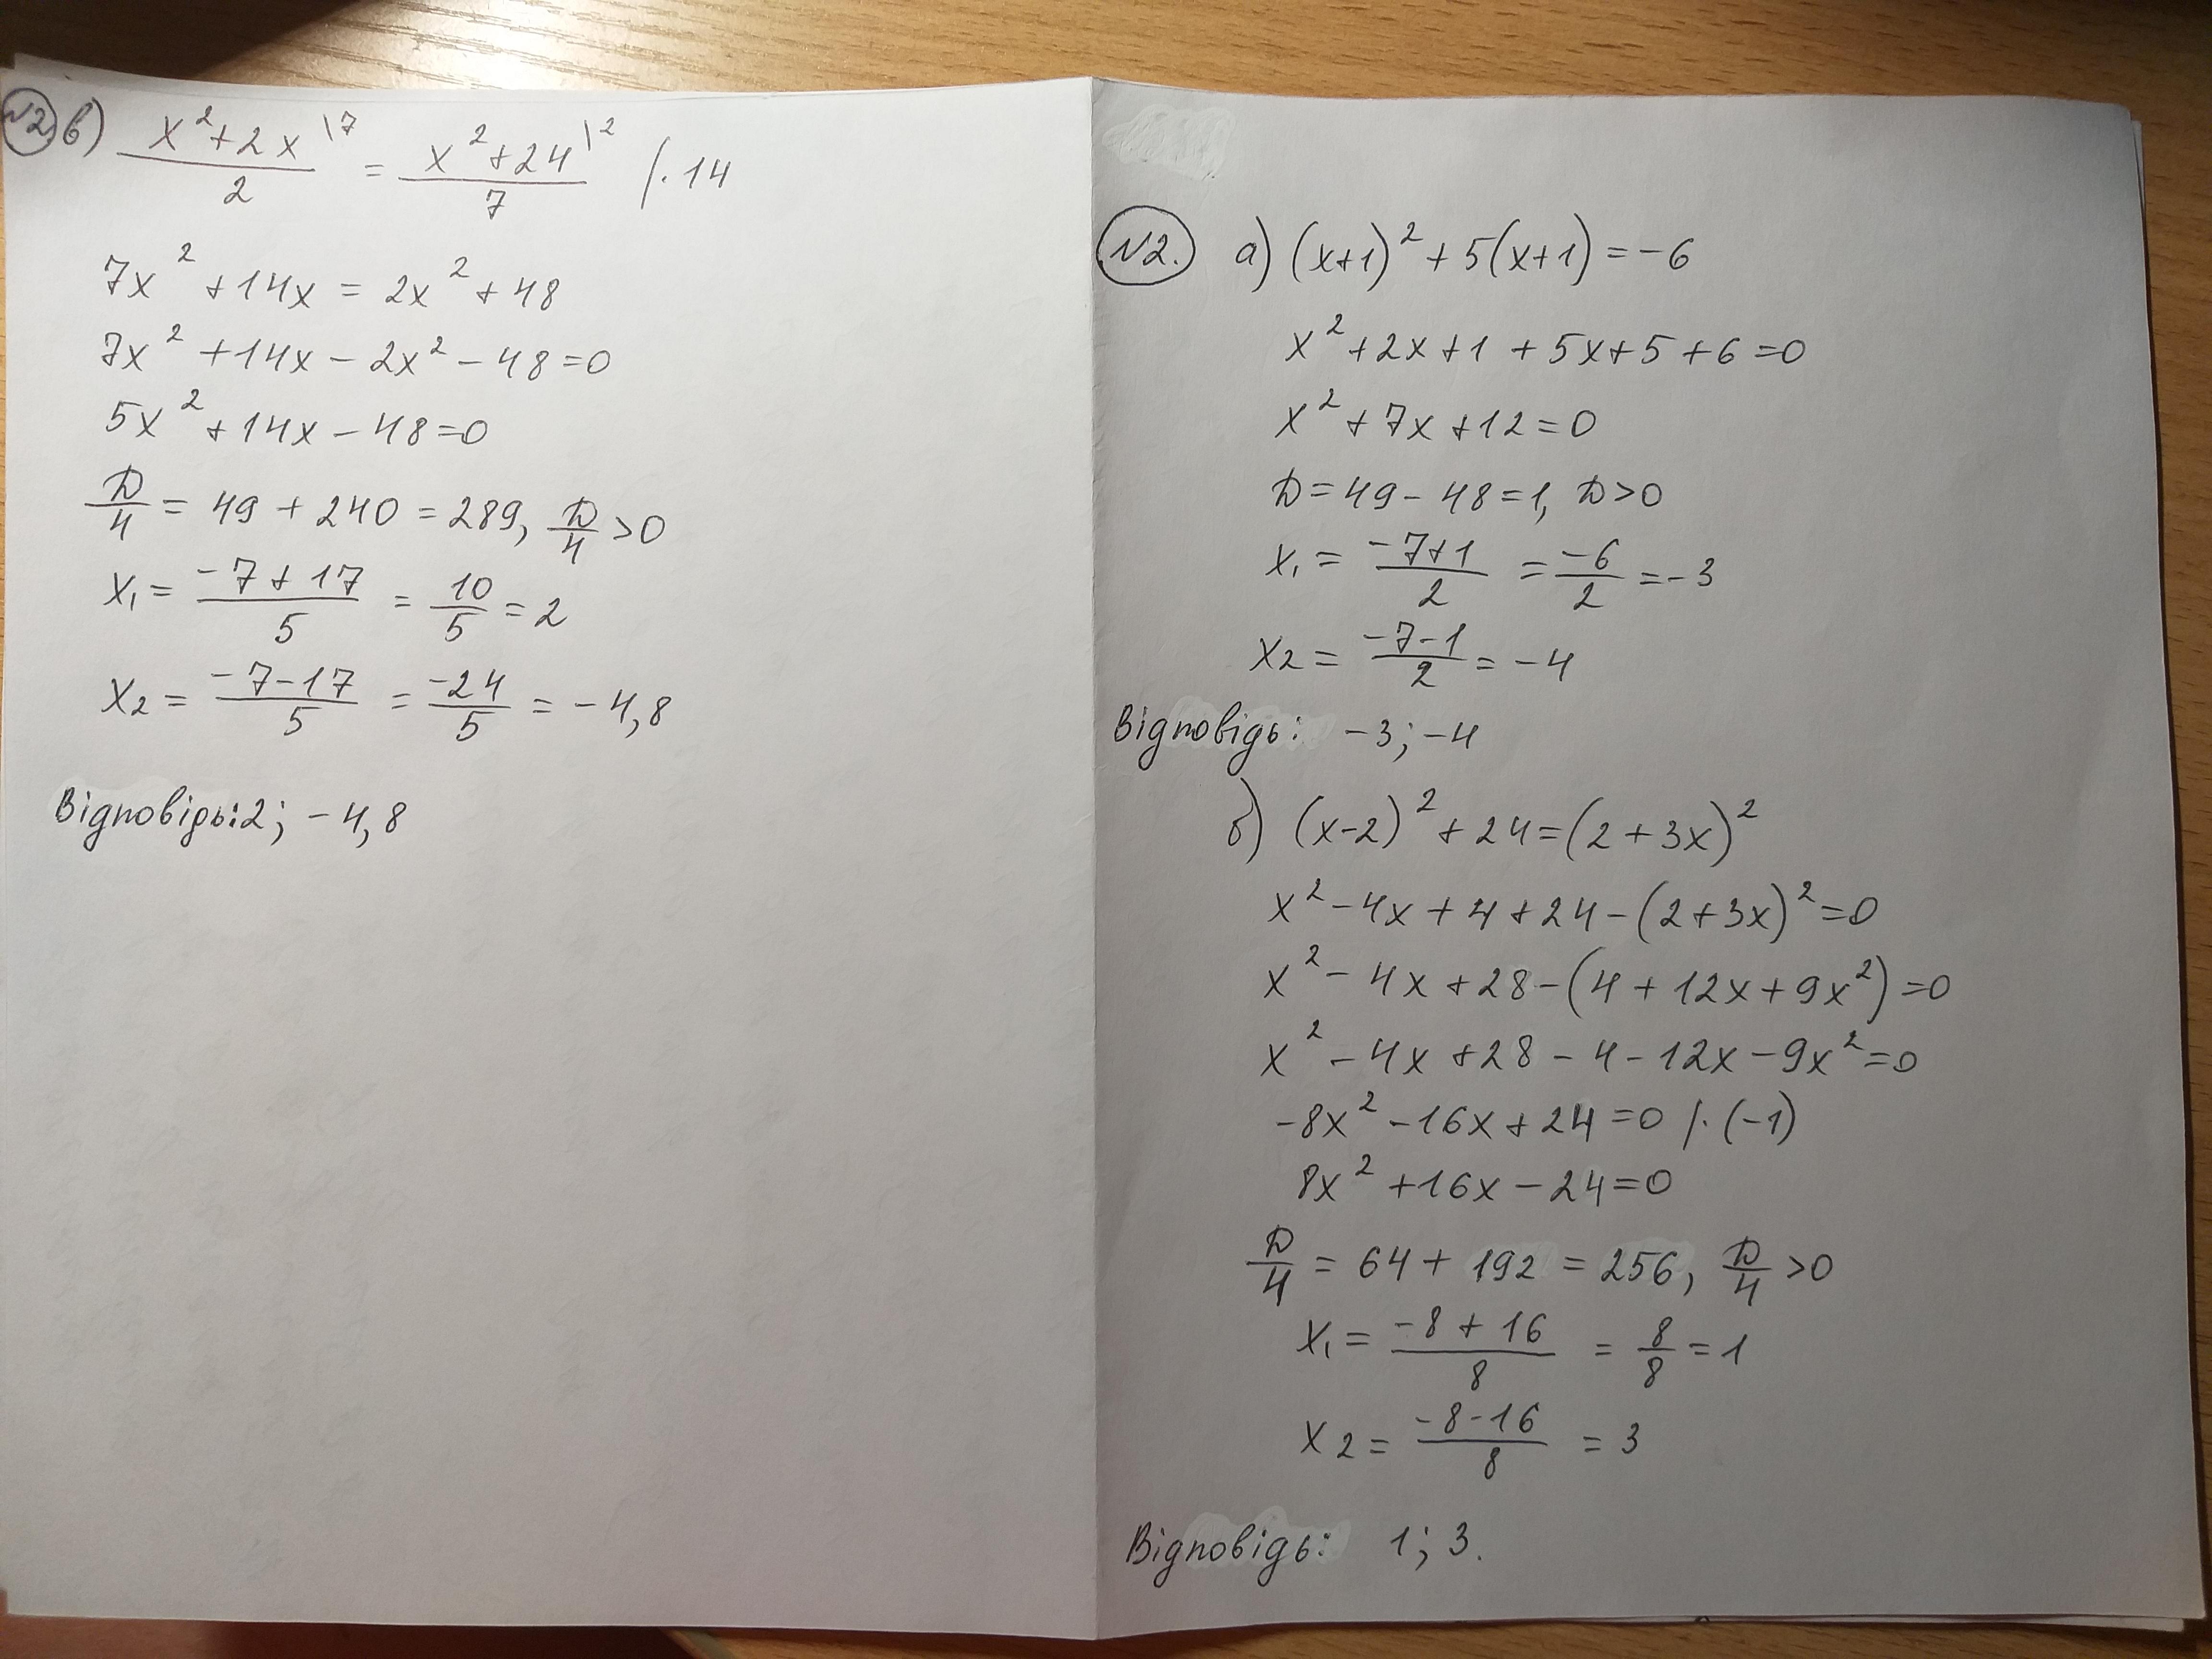 №2 в) (x² + 2x \7)/2 = (x² + 24 \2)/7 /· 14
7x² + 14x = 2x² + 48
7x² + 14x − 2x² − 48 = 0
5x² + 14x − 48 = 0
D/4 = 49 + 240 = 289, D/4 > 0
x₁ = (−7 + 17)/5 = 10/5 = 2
x₂ = (−7 − 17)/5 = −24/5 = −4,8
Відповідь: 2; −4,8
№2. а) (x+1)² + 5(x+1) = −6
x² + 2x + 1 + 5x + 5 + 6 = 0
x² + 7x + 12 = 0
D = 49 − 48 = 1, D > 0
x₁ = (−7+1)/2 = −6/2 = −3
x₂ = (−7−1)/2 = −4
Відповідь: −3; −4
б) (x−2)² + 24 = (2 + 3x)²
x² − 4x + 4 + 24 − (2 + 3x)² = 0
x² − 4x + 28 − (4 + 12x + 9x²) = 0
x² − 4x + 28 − 4 − 12x − 9x² = 0
−8x² − 16x + 24 = 0 /· (−1)
8x² + 16x − 24 = 0
D/4 = 64 + 192 = 256, D/4 > 0
x₁ = (−8 + 16)/8 = 8/8 = 1
x₂ = (−8 − 16)/8 = 3
Відповідь: 1; 3.